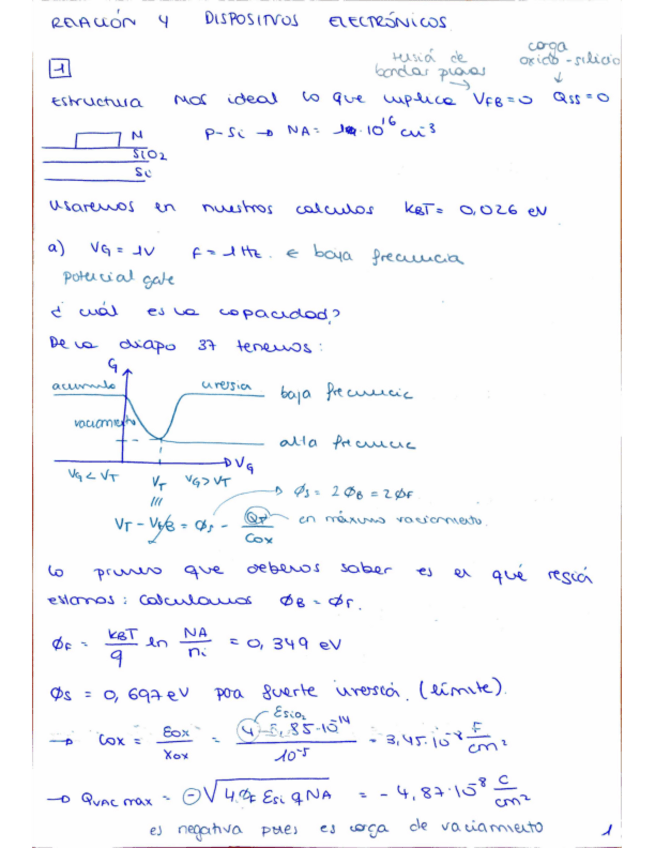 RELACIÓN 4 DISPOSITIVOS ELECTRÓNICOS.
1
tensión de bandas planas → carga oxido-silicio ↓
Estructura MOS ideal lo que implica VFB=0 QSS=0
M
SiO2
Si
P-Si → NA = 10·10^16 cm^-3
Usaremos en nuestros calculos KBT = 0,026 eV
a) VG = 1V f = 1Hz. ∈ baja frecuencia
potencial gate
¿cuál es la capacidad?
De la diapo 37 tenemos:
G
acumula
inversia
baja frecuencia
vaciamiento
alta frecuencia
VG
VG < VT
VT
VG > VT
→ ØS = 2ØB = 2ØF
VT - VFB = ØS - QT/Cox en máximo vaciamiento.
Lo primero que debemos saber es en qué región
estamos: Calculamos ØB = ØF.
ØF = KBT/q ln NA/ni = 0,349 eV
ØS = 0,697 eV para fuerte inversión. (límite).
ESiO2
→ Cox = Eox/Xox = 4·8,85·10^-14/10^-5 = 3,45·10^-8 F/cm²
→ QVAC max = -√(4ØF ESi q NA) = -4,87·10^-8 C/cm²
es negativa pues es carga de vaciamiento
1